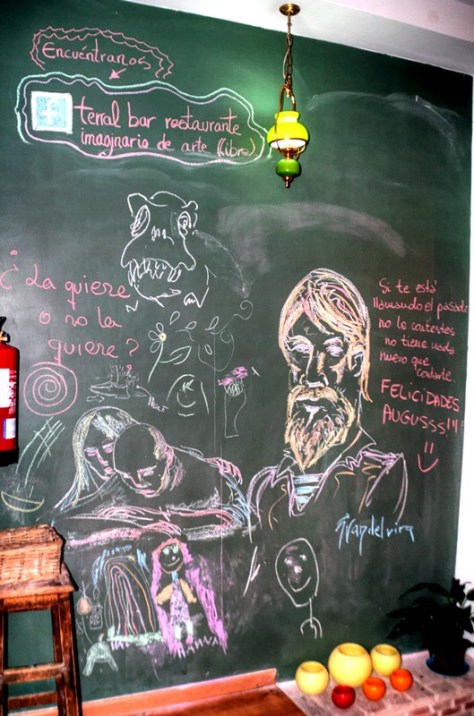 Encuéntranos
f terral bar restaurante
imaginario de arte (libre)
¿La quiere
o no la
quiere?
Si te está
llamando el pasado
no le contestes
no tiene nada
nuevo que
contarte...
FELICIDADES
AUGUSSS!!!